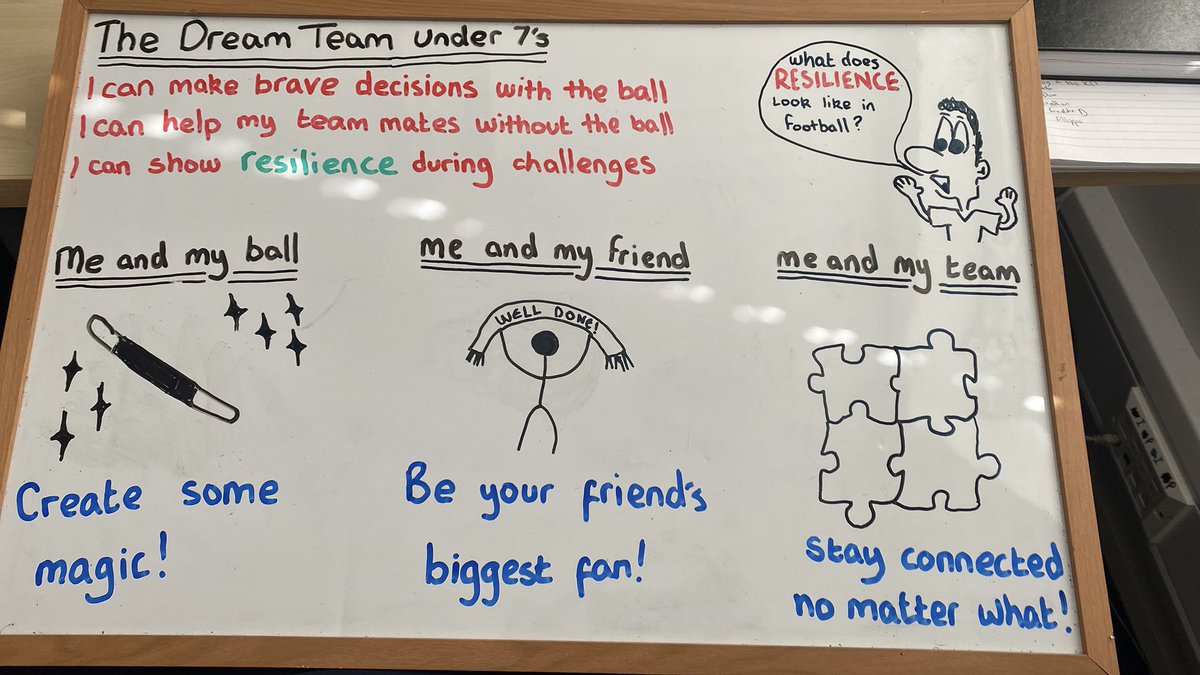 The Dream Team under 7's
I can make brave decisions with the ball
I can help my team mates without the ball
I can show resilience during challenges
What does
RESILIENCE
Look like in
football?
Me and my ball
me and my friend
me and my team
WELL DONE!
Create some
magic!
Be your friend's
biggest fan!
Stay connected
no matter what!